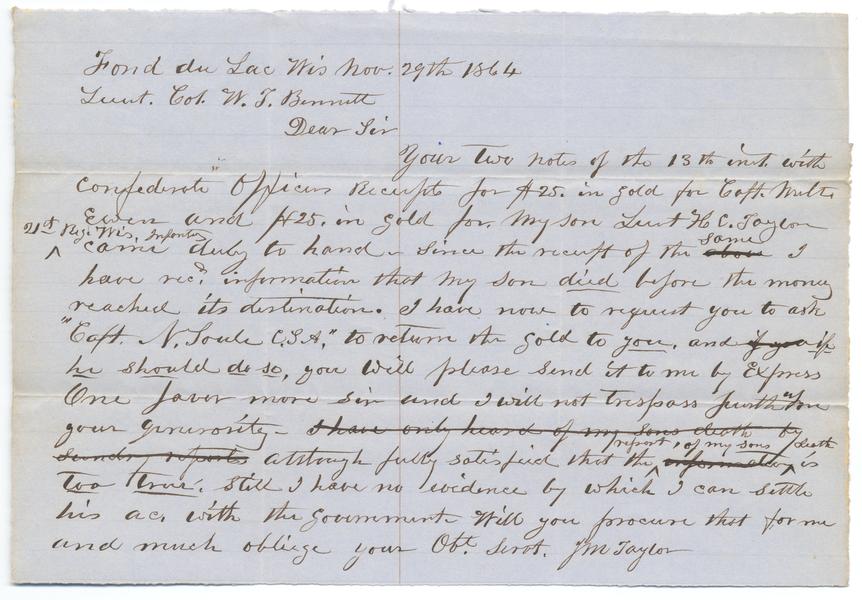 Fond du Lac Wis Nov. 29th 1864
Lieut. Col. W. T. Bennett
Dear Sir
Your two notes of the 13th inst. with
Confederate "Officers Receipts for $25. in gold for Capt. Milts
Ewen and $25. in gold for. My son Lieut H C. Taylor
21st Reg. Wis. Infantry
came duly to hand - since the receipt of the same above I
have recd. information that my son died before the money
reached its destination. I have now to request you to ask
"Capt. N. Soule C.S.A." to return the gold to you, and if you if
he should do so, you will please send it to me by Express
One favor more sir and I will not trespass further on
your generosity - I have only heard of my sons death by
sundry reports although fully satisfied that the report, of my sons death information is
too true. Still I have no evidence by which I can settle
his ac. with the Government Will you procure that for me
and much obliege your Obt. Servt. J M Taylor